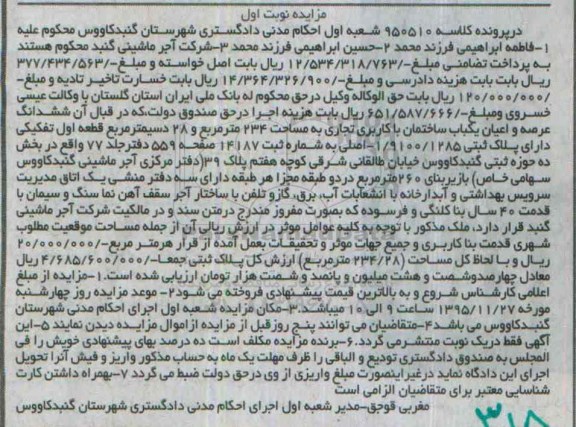 مزایده نوبت اول
درپرونده کلاسه ۹۵۰۵۱۰ شعبه اول احکام مدنی دادگستری شهرستان گنبدکاووس محکوم علیه
۱-فاطمه ابراهیمی فرزند محمد ۲-حسین ابراهیمی فرزند محمد ۳-شرکت آجر ماشینی گنبد محکوم هستند
به پرداخت تضامنی مبلغ-/۱۲/۵۳۴/۳۱۸/۷۶۳ ریال بابت اصل خواسته و مبلغ-/۳۷۷/۴۳۴/۵۶۳
ریال بابت بابت هزینه دادرسی و مبلغ-/۱۴/۳۶۴/۳۲۶/۹۰۰ ریال بابت خسارت تاخیر تادیه و مبلغ-
/۱۲۰/۰۰۰/۰۰۰ ریال بابت حق الوکاله وکیل درحق محکوم له بانک ملی ایران استان گلستان با وکالت عیسی
خسروی ومبلغ-/۶۵۱/۵۸۷/۶۶۶ ریال بابت هزینه اجرا درحق صندوق دولت،که در قبال آن ششدانگ
عرصه و اعیان یکباب ساختمان با کاربری تجاری به مساحت ۲۳۴ مترمربع و ۲۸ دسیمترمربع قطعه اول تفکیکی
دارای پلاک ثبتی ۱/۹۱۰۰/۱۲۸۵-اصلی به شماره ثبت ۱۴۱۸۷ صفحه ۵۵۹ دفترجلد ۷۷ واقع در بخش
ده حوزه ثبتی گنبدکاووس خیابان طالقانی شرقی کوچه هفتم پلاک ۳۹(دفتر مرکزی آجر ماشینی گنبدکاووس
سهامی خاص) بازیربنای ۲۶۰مترمربع دردو طبقه مجزا هر طبقه دارای سه دفتر منشی یک اتاق مدیریت
سرویس بهداشتی و آبدارخانه با انشعابات آب، برق، گازو تلفن با ساختار آجر سقف آهن نما سنگ و سیمان با
قدمت ۴۰ سال بنا کلنگی و فرسوده که بصورت مفروز مندرج درمتن سند و در مالکیت شرکت آجر ماشینی
گنبد قرار دارد، ملک مذکور با توجه به کلیه عوامل موثر در ارزش ریالی آن از جمله مساحت موقعیت مطلوب
شهری قدمت بنا کاربری و جمیع جهات موثر و تحقیقات بعمل آمده از قرار هرمتر مربع-/۲۰/۰۰۰/۰۰۰
ریال و با لحاظ کل مساحت (۲۳۴/۲۸مترمربع) ارزش کل پلاک ثبتی جمعا-/۴/۶۸۵/۶۰۰/۰۰۰ ریال
معادل چهارصدوشصت و هشت میلیون و پانصد و شصت هزار تومان ارزیابی شده است.۱-مزایده از مبلغ
اعلامی کارشناس شروع و به بالاترین قیمت پیشنهادی فروخته می شود۲- موعد مزایده روز چهارشنبه
مورخه ۱۳۹۵/۱۱/۲۷ ساعت ۹ الی ۱۰ میباشد.۳-مکان مزایده شعبه اول اجرای احکام مدنی شهرستان
گنبدکاووس می باشد۴-متقاضیان می توانند پنج روز قبل از مزایده از اموال مزایده دیدن نمایند ۵-این
آگهی فقط دریک نوبت منتشرمی گردد.۶-برنده مزایده مکلف است ده درصد بهای پیشنهادی خویش را فی
المجلس به صندوق دادگستری تودیع و الباقی را ظرف مهلت یک ماه به حساب مذکور واریز و فیش آنرا تحویل
اجرای این دادگاه نماید درغیراینصورت مبلغ واریزی از وی درحق دولت ضبط می گردد ۷-بهمراه داشتن کارت
شناسایی معتبر برای متقاضیان الزامی است
مغربی قوجق-مدیر شعبه اول اجرای احکام مدنی دادگستری شهرستان گنبدکاووس
۳۱۸